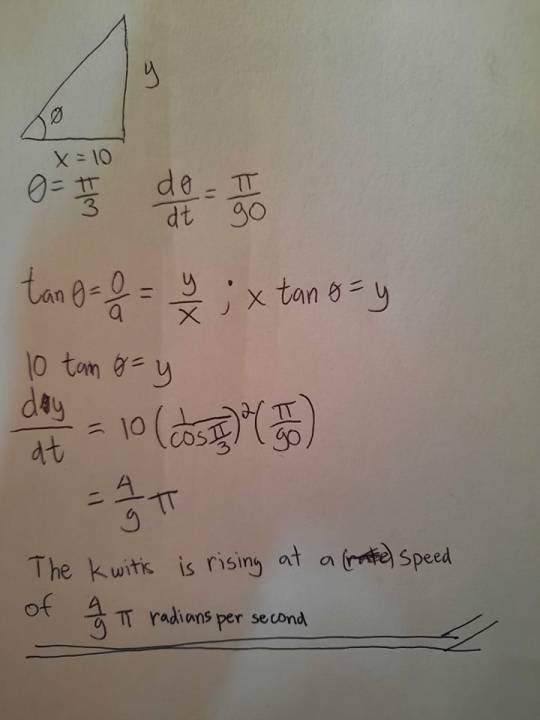 y
θ
x = 10
θ = π/3    dθ/dt = π/90
tan θ = o/a = y/x ; x tan θ = y
10 tan θ = y
dy/dt = 10 (1/cos π/3)² (π/90)
= 4/9 π
The kwitis is rising at a (rate) speed
of 4/9 π radians per second